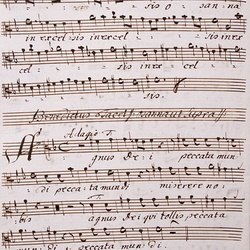 sio o sanna
in excelsis in excel sio in ex
cel sis in ex cel
sis.
Benedictus tacet Osanna ut supra
Adagio
Agnus dei peccata mun
di peccata mundi miserere no
bis agnus dei qui tollis peccata
mundi peccata mundi.